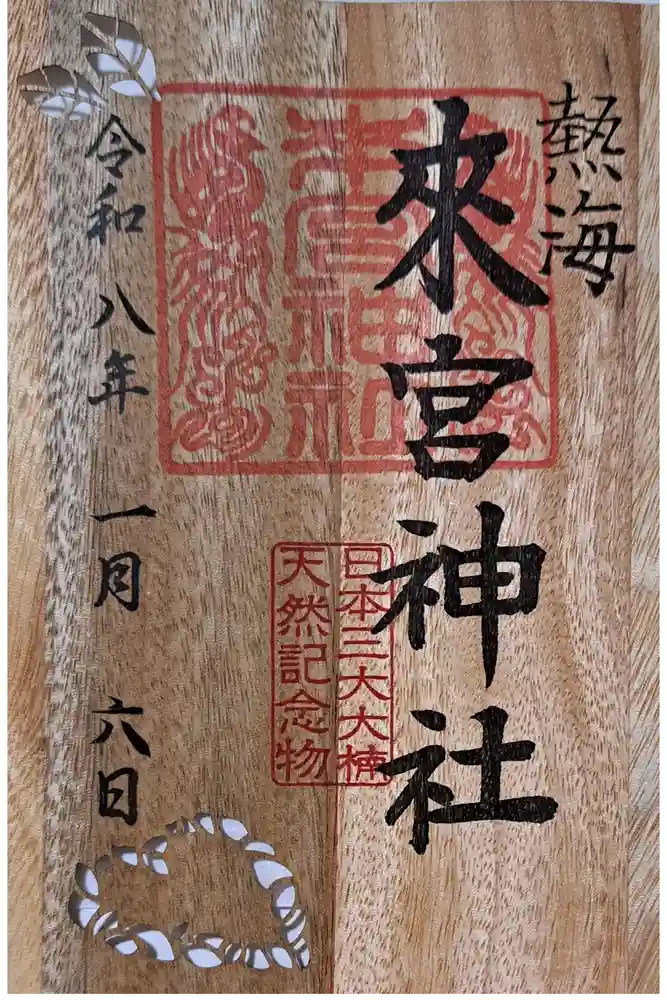 熱海
來宮神社
來宮神社
日本三大大楠
天然記念物
令和八年一月六日